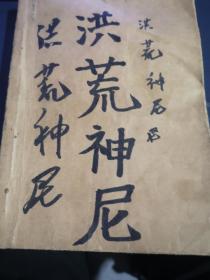 洪荒神尼
洪荒神尼
洪荒神尼